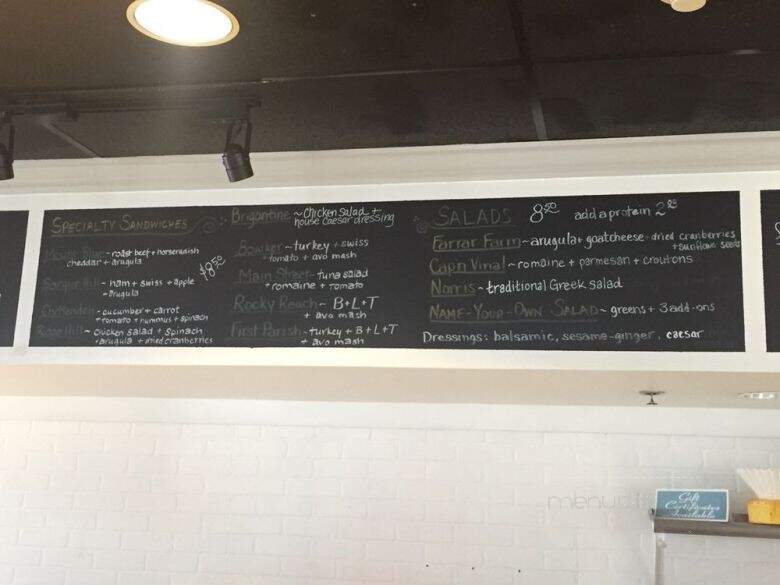 SPECIALTY SANDWICHES
$8.50
~ roast beef + horseradish
cheddar + arugula
- ham + swiss + apple
+ arugula
Chittenden - cucumber + carrot
+ tomato + hummus + spinach
Rose Hill ~ chicken salad + spinach
+ arugula + dried cranberries
Brigantine ~ chicken salad +
house Caesar dressing
Bowker ~ turkey + swiss
+ tomato + avo mash
Main Street - tuna salad
+ romaine + tomato
Rocky Reach - B+L+T
+ avo mash
First Parish - turkey + B+L+T
+ avo mash
SALADS 8.50 add a protein 2
Farrar Farm ~ arugula + goat cheese - dried cranberries
+ sunflower seeds
Cap'n Vinal ~ romaine + parmesan + croutons
Norris ~ traditional Greek salad
NAME-YOUR-OWN SALAD ~ greens + 3 add-ons
Dressings: balsamic, sesame-ginger, caesar
Gift
Certificates
Available